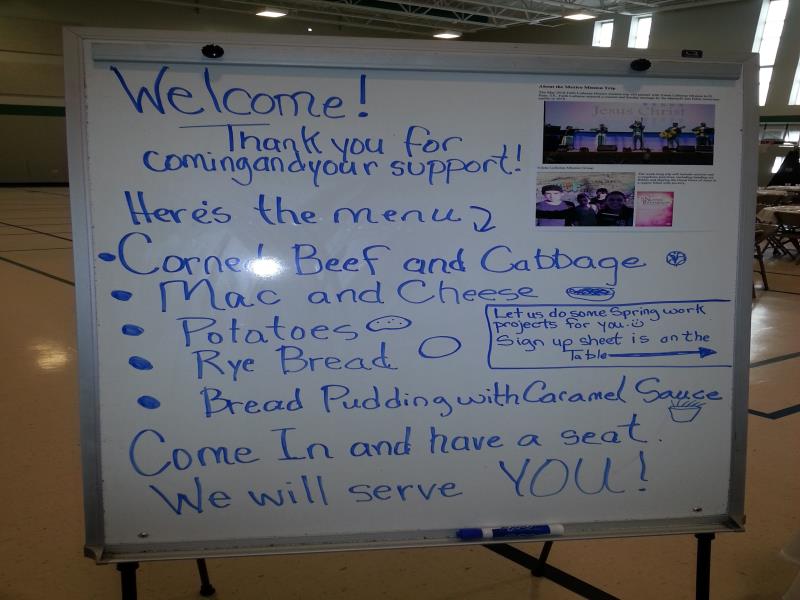 Welcome!
Thank you for
coming and your support!
Here's the menu
• Corned Beef and Cabbage
• Mac and Cheese
• Potatoes
• Rye Bread
• Bread Pudding with Caramel Sauce
Let us do some Spring work
projects for you.
Sign up sheet is on the
Table
Come In and have a seat.
We will serve YOU!
About the Mexico Mission Trip
Jesus Christ